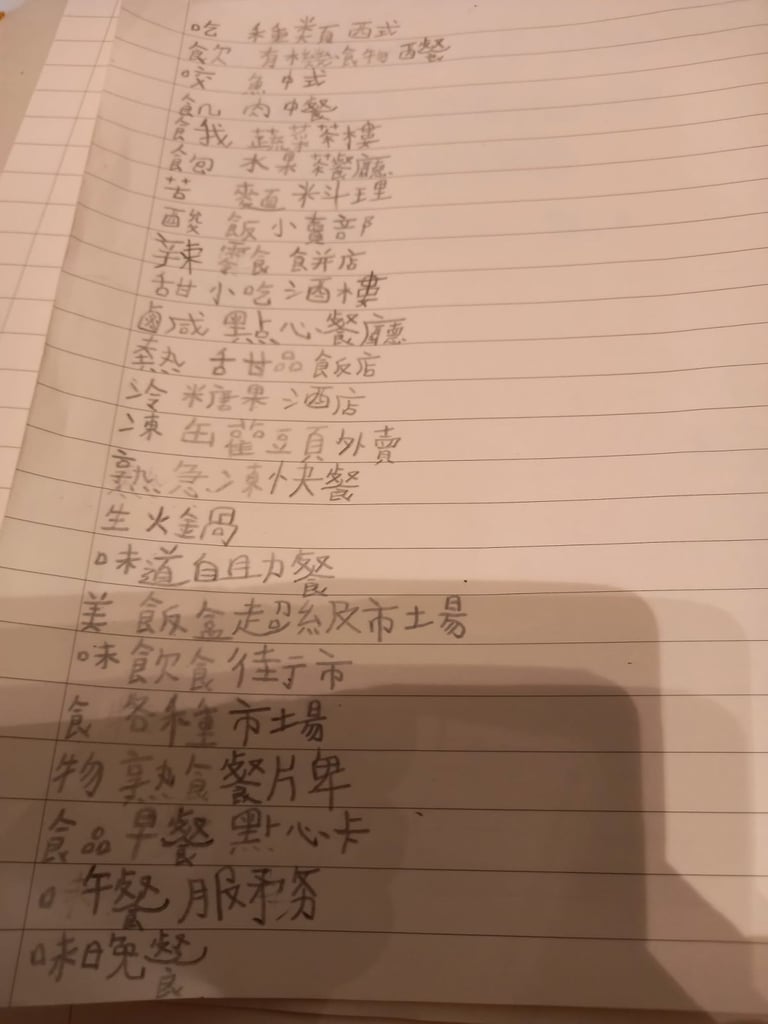 吃 種類 西式
飲 有機食物 西餐
咬 魚 中式
飢 肉 中餐
餓 蔬菜 茶樓
飽 水果 茶餐廳
苦 麵 料理
酸 飯 小賣部
辣 零食 餅店
甜 小吃 酒樓
鹹 點心 餐廳
熱 甜品 飯店
冷 糖果 酒店
凍 罐頭 外賣
熱 急凍 快餐
生 火鍋
味道 自助餐
美 飯盒 超級市場
味 飲食 街市
食 各種 市場
物 熟食 餐牌
食品 早餐 點心卡
午餐 服務
味 晚餐